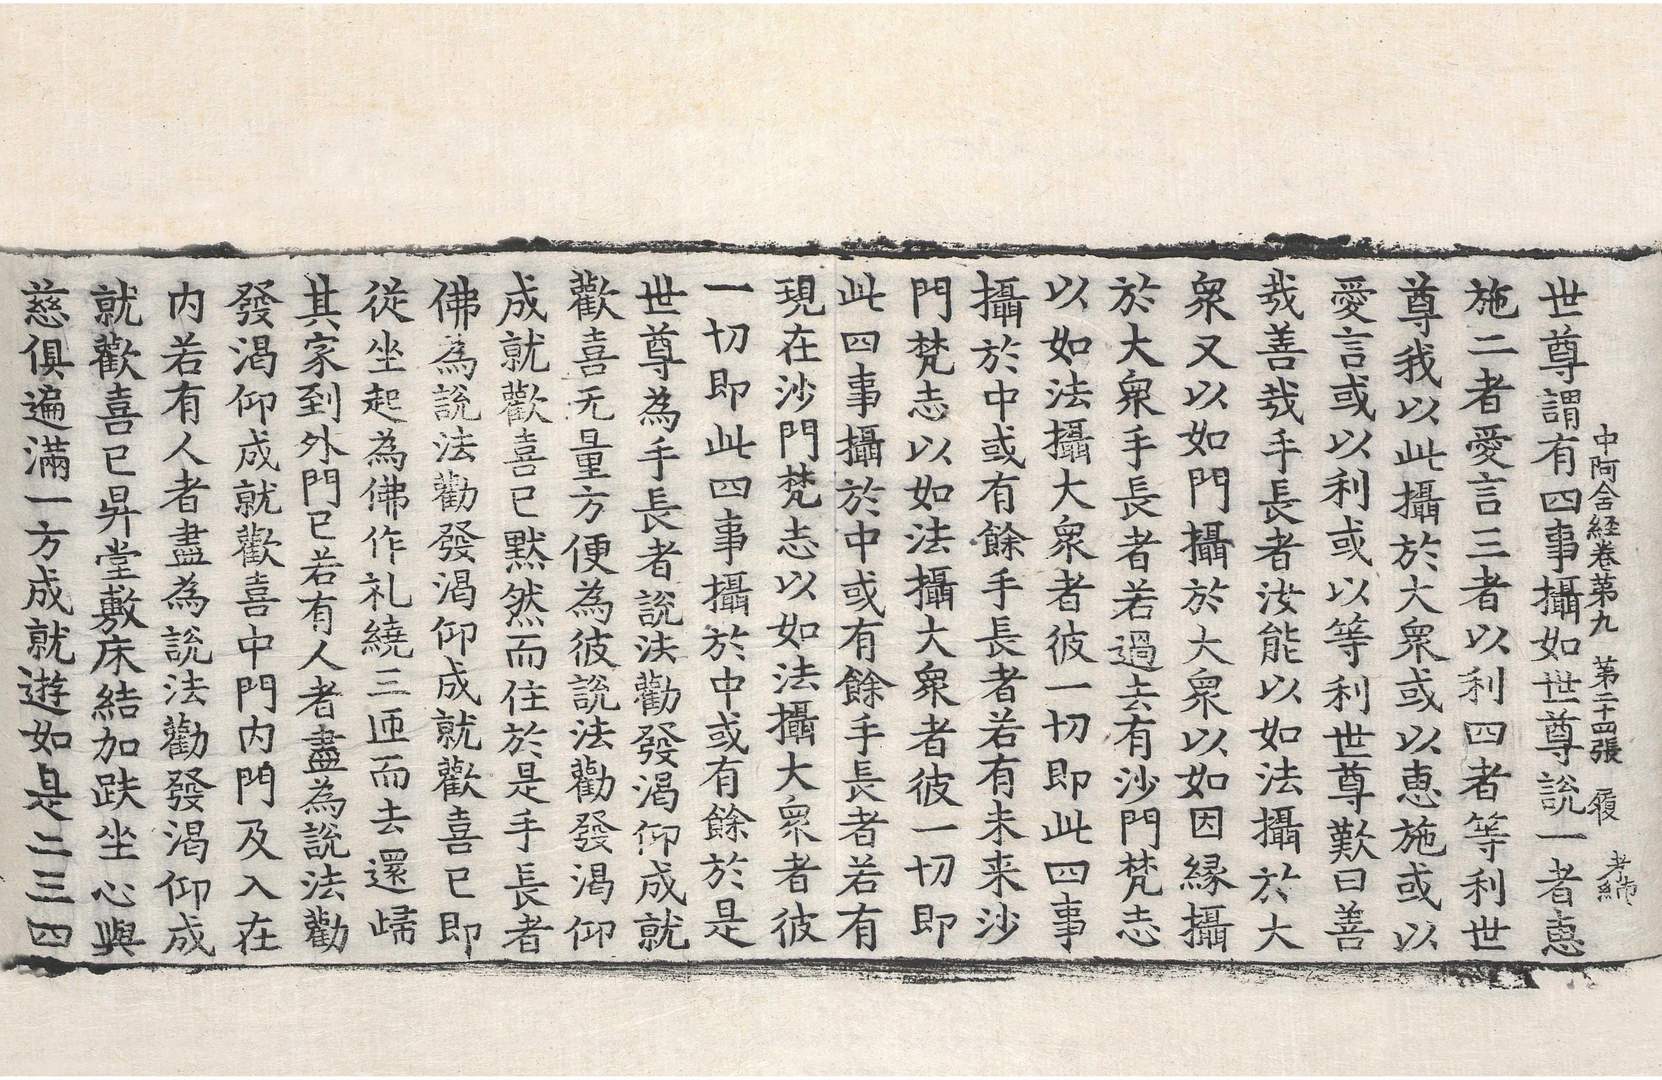 中阿含経卷第九　第二十四張　履
世尊謂有四事攝如世尊說一者惠
施二者愛言三者以利四者等利世
尊我以此攝於大衆或以恵施或以
愛言或以利或以等利世尊歎曰善
哉善哉手長者汝能以如法攝於大
衆又以如門攝於大衆以如因縁攝
於大衆手長者若過去有沙門梵志
以如法攝大衆者彼一切即此四事
攝於中或有餘手長者若有未来沙
門梵志以如法攝大衆者彼一切即
此四事攝於中或有餘手長者若有
現在沙門梵志以如法攝大衆者彼
一切即此四事攝於中或有餘於是
世尊為手長者說法勸發渴仰成就
歡喜无量方便為彼說法勸發渴仰
成就歡喜已默然而住於是手長者
佛為說法勸發渴仰成就歡喜已即
從坐起為佛作礼繞三匝而去還歸
其家到外門已若有人者盡為說法勸
發渴仰成就歡喜中門內門及入在
內若有人者盡為說法勸發渴仰成
就歡喜已昇堂敷床結加趺坐心與
慈俱遍滿一方成就遊如是二三四